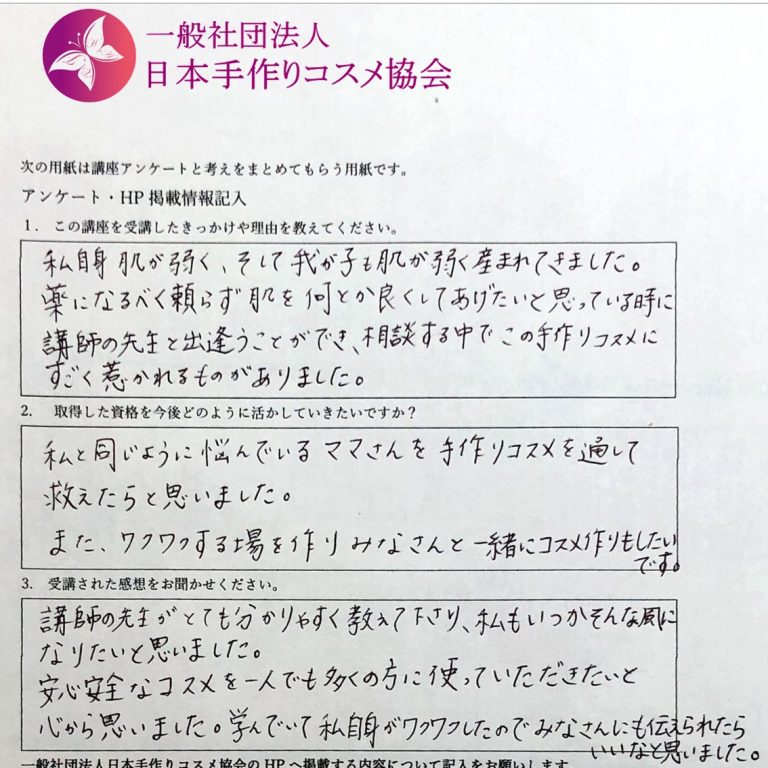 一般社団法人
日本手作りコスメ協会
次の用紙は講座アンケートと考えをまとめてもらう用紙です。
アンケート・HP 掲載情報記入
1. この講座を受講したきっかけや理由を教えてください。
私自身 肌が弱く、そして 我が子も肌が弱く産まれてきました。
薬になるべく頼らず 肌を 何とか良くしてあげたいと思っている時に
講師の先生と出逢うことができ、相談する中で この手作りコスメに
すごく惹かれるものがありました。
2. 取得した資格を今後どのように活かしていきたいですか？
私と同じように 悩んでいる ママさんを 手作りコスメを通して
救えたらと思いました。
また、ワクワクする場を作り みなさんと 一緒にコスメ作りもしたい
です。
3. 受講された感想をお聞かせください。
講師の先生が とても分かりやすく 教えて下さり、私もいつかそんな風に
なりたいと思いました。
安心安全なコスメを一人でも多くの方に使っていただきたいと
心から思いました。学んでいて 私自身がワクワクしたので みなさんにも伝えられたら
いいなと思いました。
一般社団法人日本手作りコスメ協会の HP へ掲載する内容について記入をお願いします